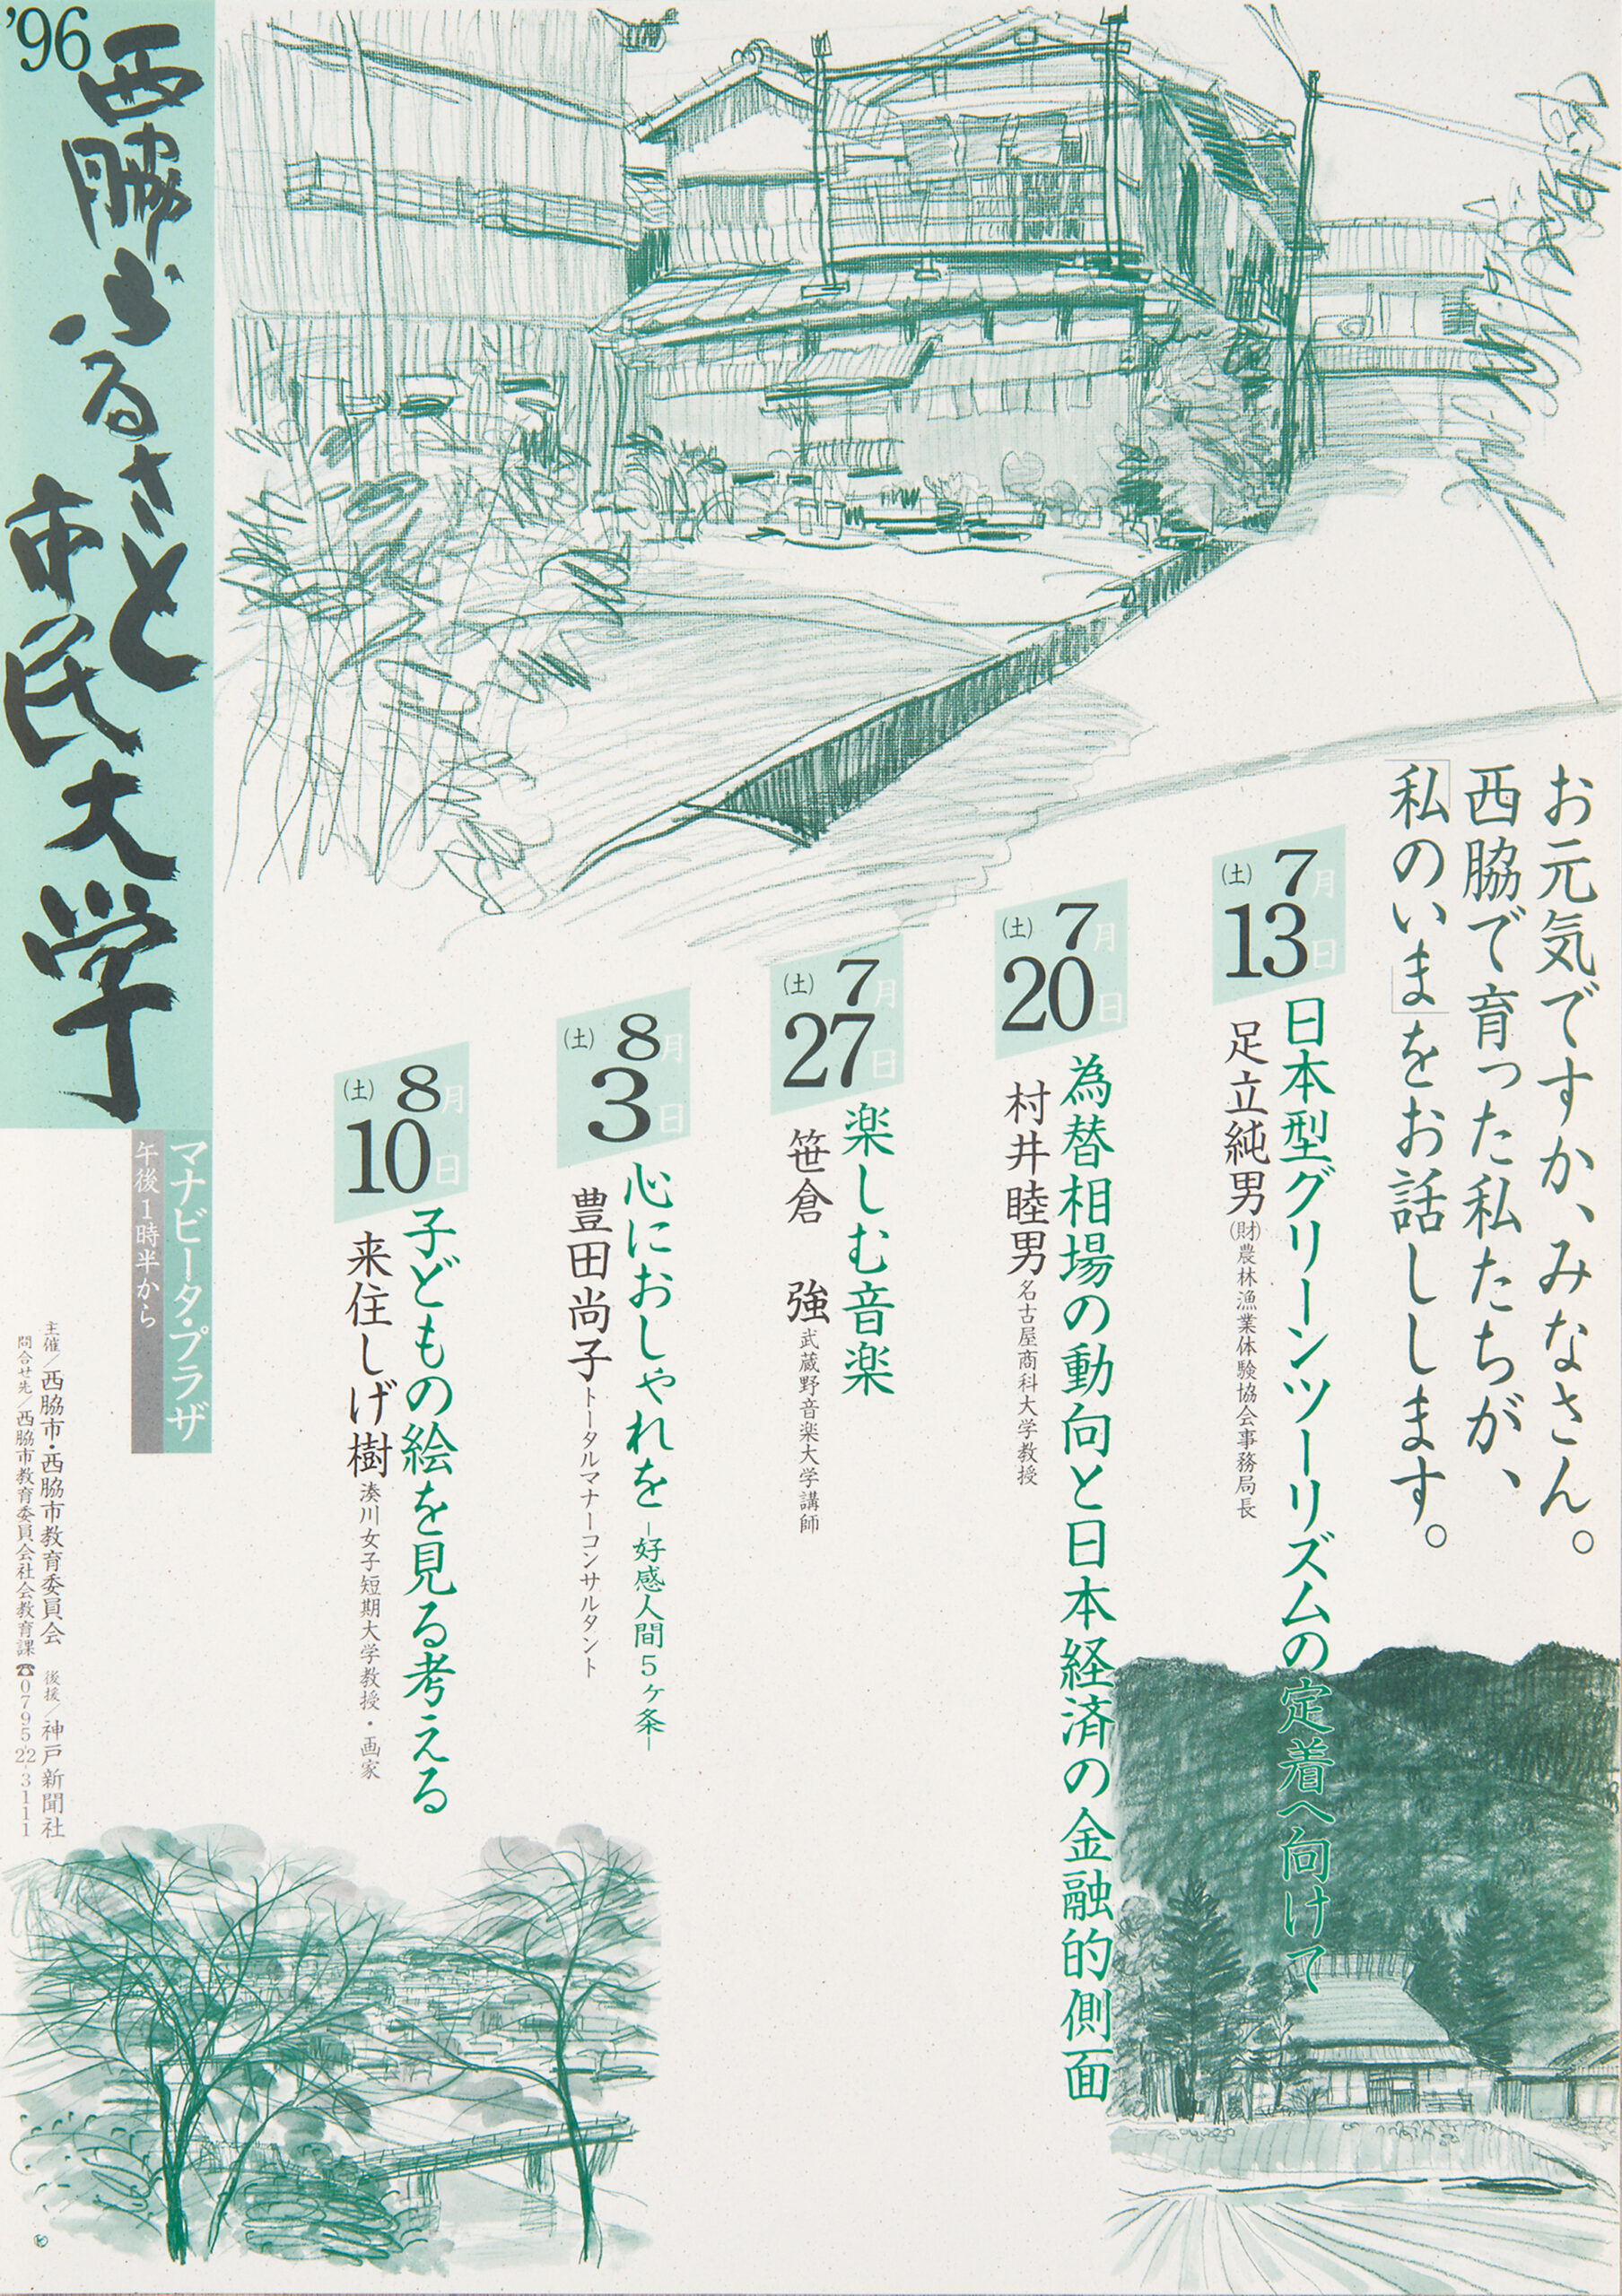 '96
西脇ふるさと
市民大学
お元気ですか、みなさん。
西脇で育った私たちが、
「私のいま」をお話しします。
7月
13日
(土)
日本型グリーンツーリズムの定着へ向けて
足立純男 (財)農林漁業体験協会事務局長
7月
20日
(土)
為替相場の動向と日本経済の金融的側面
村井睦男 名古屋商科大学教授
7月
27日
(土)
楽しむ音楽
笹倉 強 武蔵野音楽大学講師
8月
3日
(土)
心におしゃれを −好感人間5ヶ条−
豊田尚子 トータルマナーコンサルタント
8月
10日
(土)
子どもの絵を見る考える
来住しげ樹 湊川女子短期大学教授・画家
マナビータ・プラザ
午後1時半から
主催/西脇市・西脇市教育委員会 後援/神戸新聞社
問合せ先/西脇市教育委員会社会教育課☎0795-22-3111